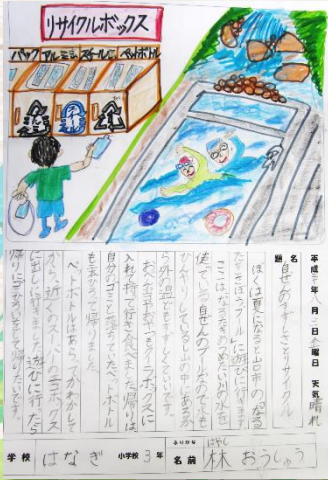 リサイクルボックス
パック アルミ缶 スチール缶 ペットボトル
アルミ
平成三 年 八 月 日 金曜日 天気 晴れ
題名 自ぜんのすずしさとリサイクル
ぼくは夏になると山口市の
たきそぼうプール」に遊びに行きます
ここは なる たきの水を
使っている自ぜんのプールなので水も
ひんやりしている 山の中にあるか
ら外の温 もすずしくていいです。
お べん当や おやつもクーラーボックスに
入れて持って行き食べました。帰りは
自分のゴミと落ちていたペットボトル
もをひろって帰りました。
ペットボトルはあらってかわかして
から近くのスーパーのエコボックス
に出しに行きました。遊びに行ったら
帰りにゴミひろいをして帰りたいです。
学校 はなぎ 小学校 3年
ふりがな はやし
名前 林 おうしゅう